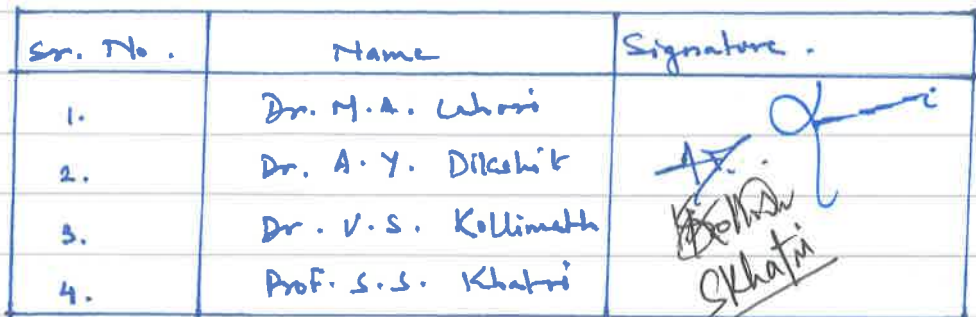 Sr. No. Name Signature.
1. Dr. M.A. Lahori
2. Dr. A.Y. Dikshit
3. Dr. V.S. Kollimath
4. Prof. S.S. Khatri SKhatri